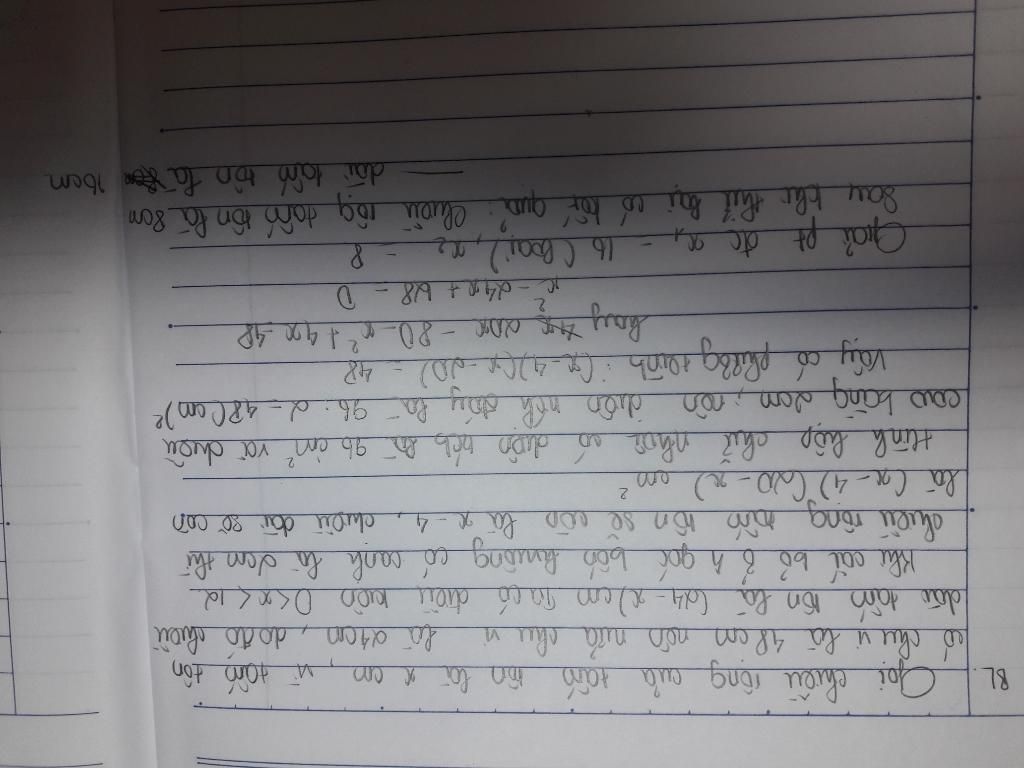 BL.
Gọi chiều rộng của tấm tôn là x cm, vì tấm tôn
có chu vi là 48 cm nên nửa chu vi là 24cm, do đó chiều
dài tấm tôn là (24-x) cm Ta có điều kiện 0<x<12
Khi cắt bỏ ở 4 góc bốn hình vuông có cạnh là 2cm thì
chiều rộng tấm tôn sẽ còn là x-4, chiều dài sẽ còn
là (x-4) (20-x) cm²
Hình hộp chữ nhật có diện tích là 96 cm² và chiều
cao bằng 2cm; nên diện tích đáy là 96 : 2 = 48(cm)²
Vậy có phương trình: (x-4)(x-20) = 48
hay 20x - 80 - x² + 4x = 48
x² - 24x + 128 = 0
Giải pt đc x₁ = 16 (loại), x₂ = 8
Sau khi thử lại có kết quả: Chiều rộng tấm tôn là 8cm
dài tấm tôn là 16cm